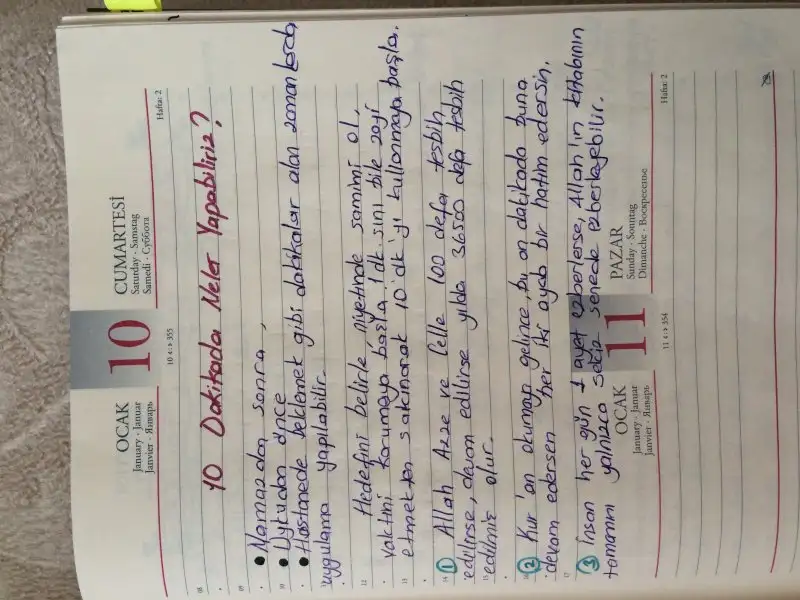 OCAK
January · Januar
Janvier · Январь
10
CUMARTESİ
Saturday · Samstag
Samedi · Суббота
10 <-> 355
Hafta: 2
10 Dakikada Neler Yapabiliriz?
• Namazdan sonra,
• Uykudan önce
• Hastanede beklemek gibi dakikalar alan zamanlarda,
uygulama yapılabilir.
Hedefini belirle niyetinde samimi ol,
vaktini korumaya başla 1 dk. sını bile zayi
etmekten sakınarak 10 dk'yı kullanmaya başla.
1 Allah Azze ve Celle 100 defa tesbih
edilirse, devam edilirse yılda 36500 defa tesbih
edilmiş olur.
2 Kur'an okumaya gelince, bu on dakikada buna
devam edersen her iki ayda bir hatim edersin.
3 İnsan her gün 1 ayet ezberlerse, Allah'ın kitabının
tamamını yalnızca sekiz senede ezberleyebilir.
OCAK
January · Januar
Janvier · Январь
11
PAZAR
Sunday · Sonntag
Dimanche · Воскресенье
11 <-> 354
Hafta: 2
08
09
10
12
13
14
15
16
17